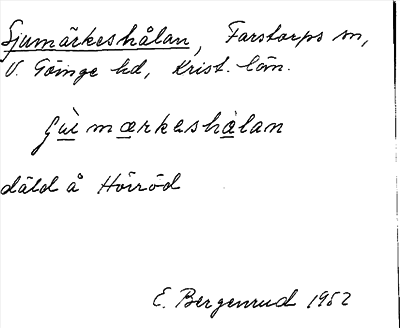 Sjumärkeshålan, Farstorps sn,
V. Göinge hd, Krist. län.
mærkeshålan
däld å Höiröd
E. Bergenrud 1952